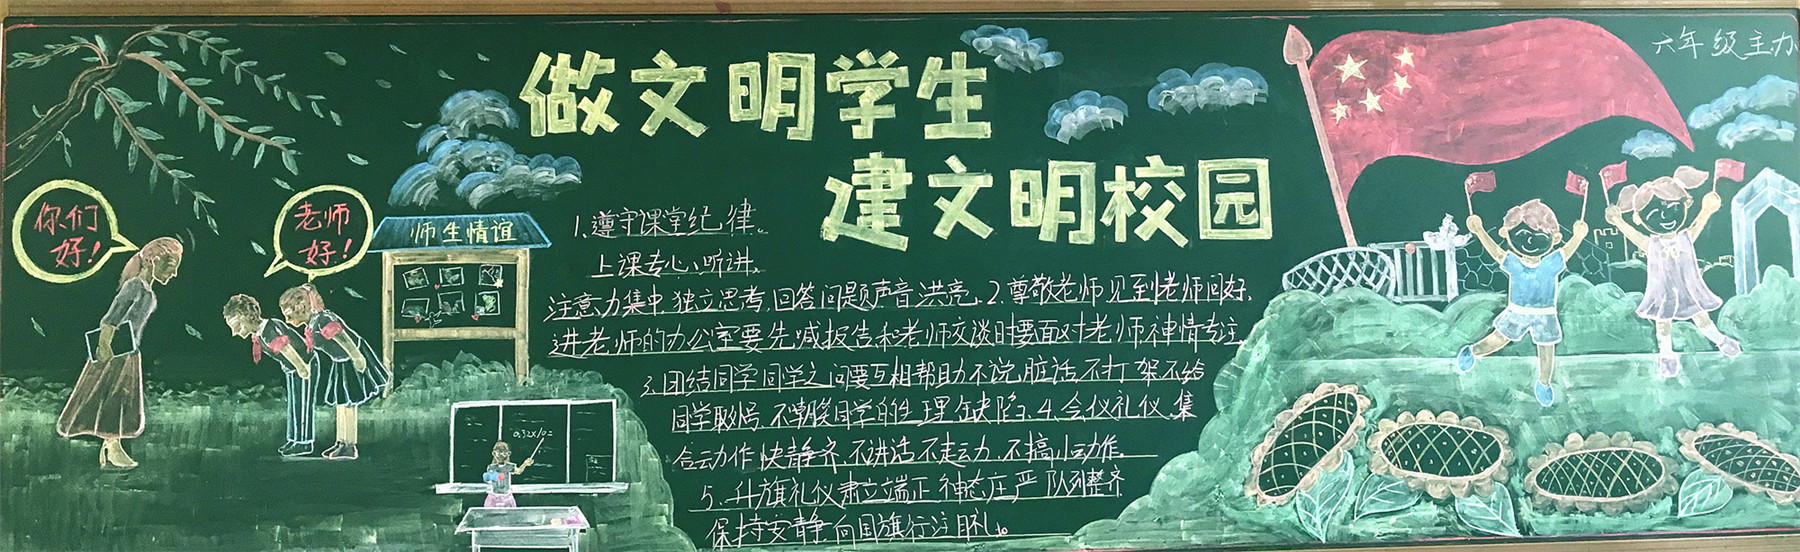 做文明学生
建文明校园
六年级主办
你们
好！
老师
好！
师生情谊
1、遵守课堂纪律。
上课专心、听讲、
注意力集中,独立思考,回答问题声音洪亮。2.尊敬老师见到老师问好、
进老师的办公室要先喊报告和老师交谈时要面对老师神情专注。
3.团结同学同学之间要互相帮助不说脏话不打架不给
同学取外号,不嘲笑同学的生理缺陷。4.会仪礼仪、集
合动作快静齐,不讲话不走动,不搞小动作。
5、升旗礼仪肃立端正神态庄严队列整齐
保持安静,向国旗行注目礼。
0.32×10=